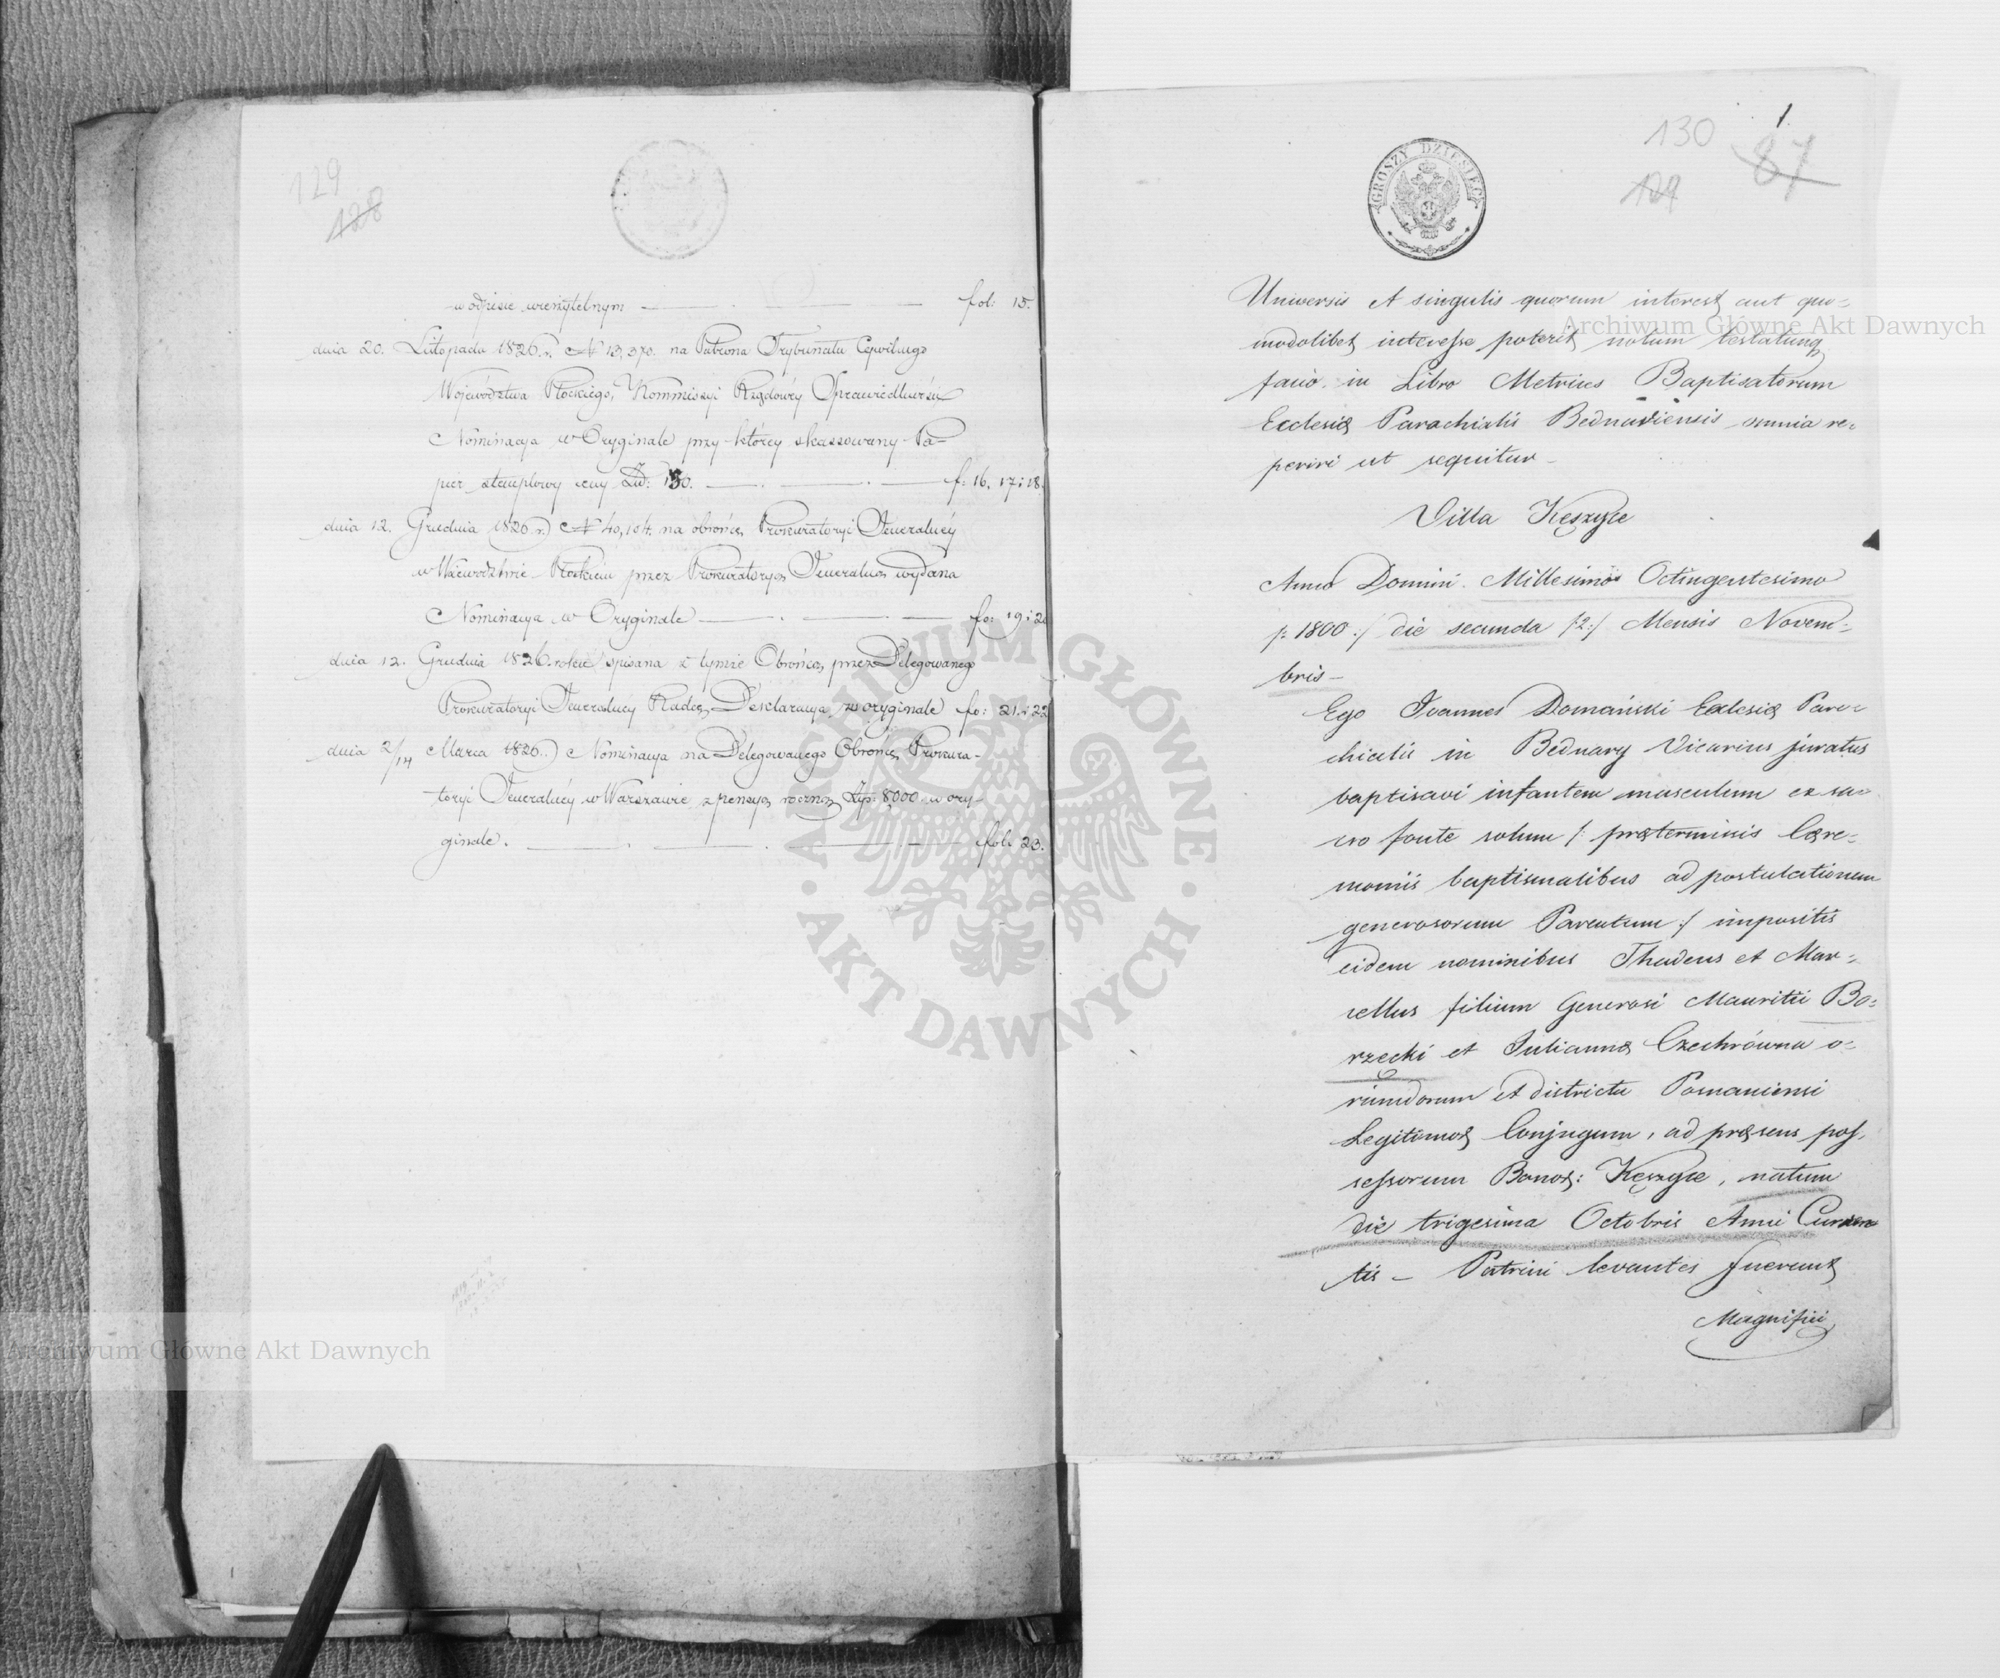 129
128
w odpisie wierzytelnym — . — — fol: 15.
dnia 20. Listopada 1826 r. N 13,370. na Patrona Trybunału Cywilnego
Województwa Płockiego, Kommissyi Rządowéy Sprawiedliwości
Nominacya w Oryginale przy którey skassowany Pa-
pier stemplowy ceny Zł: 130. — . — . — f: 16, 17 i 18.
dnia 12. Grudnia 1826 r.) N 40,104. na obrońcę Prokuratoryi Jeneralnéy
w Województwie Płockiem przez Prokuratoryą Jeneralną wydana
Nominacya w Oryginale — . — — fo: 19 i 20
dnia 12. Grudnia 1826. roku spisana z tymże Obrońcą, przez Delegowanego
Prokuratoryi Jeneralnéy Radcę, Deklaracya w oryginale fo: 21. i 22
dnia 2/14 Marca 1826.) Nominacya na Delegowanego Obrońcę Prokura-
toryi Jeneralnéy w Warszawie z pensyą roczną Złp: 8000. w ory-
ginale. — . — . — — fol: 23.
ARCHIWUM GŁÓWNE · AKT DAWNYCH ·
Archiwum Główne Akt Dawnych
1.
130
129
87
GROSZY DZIESIĘĆ
Universis et singulis quorum interest aut quo=
Archiwum Główne Akt Dawnych
modolibet interesse poterit notum testatumq
facio. in Libro Metrices Baptisatorum
Ecclesiæ Parochialis Bednariensis omnia re=
periri ut sequitur —
Villa Kęszyce
Anno Domini Millesimo Octingentesimo
/: 1800 :/ die secunda /:2:/ Mensis Novem=
bris —
Ego Ioannes Domański Ecclesiæ Paro=
chialis in Bednary Vicarius juratus
baptisavi infantem masculum ex sa=
cro fonte solum /: prætermissis Cære=
moniis baptismalibus ad postulationem
generosorum Parentum :/ impositis
eidem nominibus Thadeus et Mar=
cellus filium Generosi Mauritii Bo=
rzęcki et Julianna Czechrówna o=
riundorum et districtu Posnaniensi
Legitimor Conjugum, ad præsens pos,
sessorum Bonor: Kęszyce, natum
die trigesima Octobris Anni Curren
tis — Patrini levantes fuerunt
Magnifici